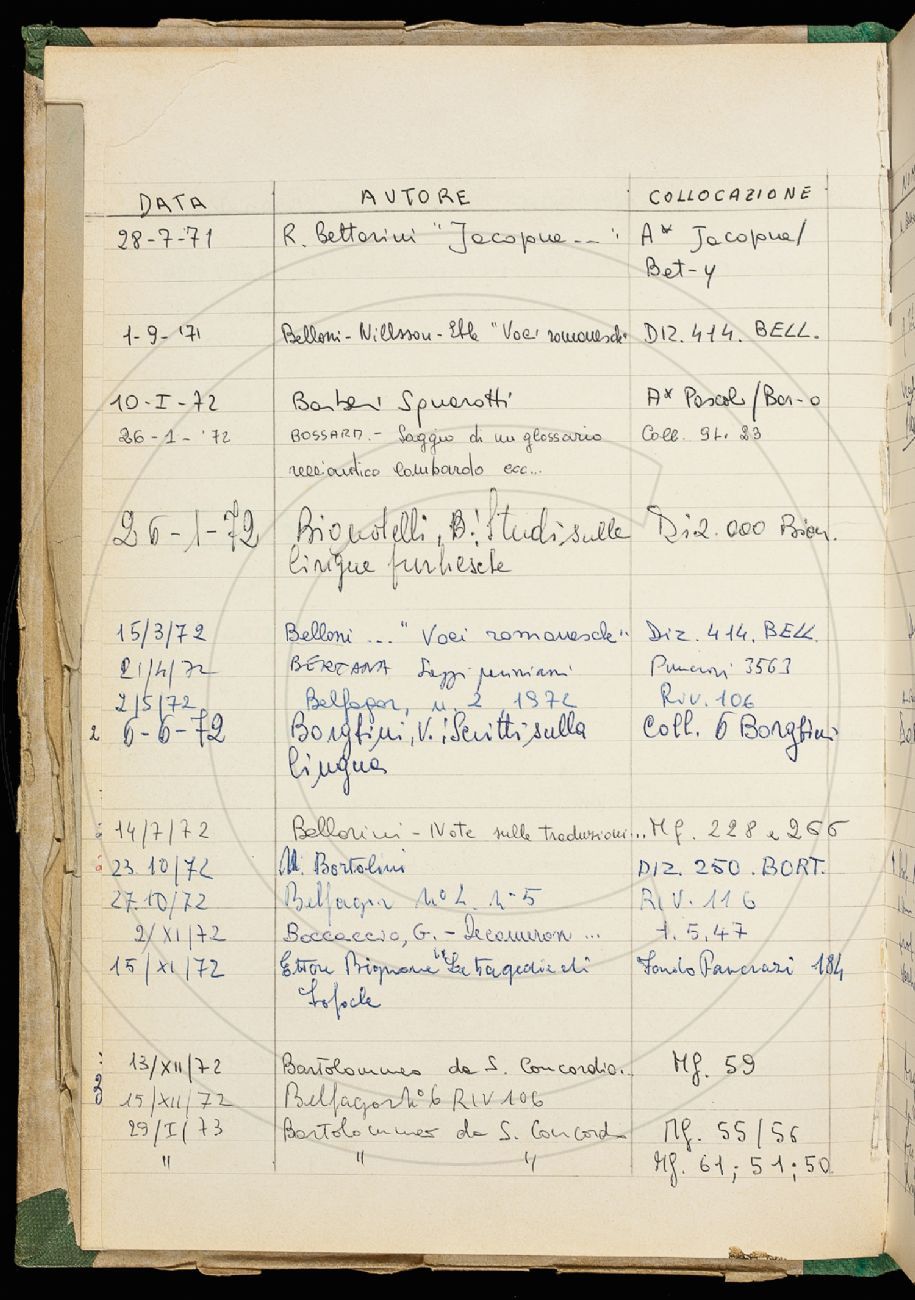 DATA AUTORE COLLOCAZIONE
28-7-71 R. Bettarini "Jacopone --" A* Jacopone/
Bet-y
1-9-'71 Belloni-Nillsson-Ehle "Voci romanesche" DIZ. 414. BELL.
10-I-72 Barberi Squarotti A* Pascoli/Bar-o
26-1-'72 BOSSARD.- Saggio di un glossario Coll. 9L. 23
lombardo ecc...
26-1-72 B.: Studi sulle Diz. 000
lingue furbesche
15/3/72 Belloni ..." Voci romanesche" Diz. 414. BELL.
21/4/72 BERTANA Saggi Pancrazi 3563
2/5/72 Belfagor, n. 2, 1972 Riv. 106
2 6-6-72 Borghini, V.: Scritti sulla Coll. 6 Borghini
lingua
14/7/72 Bellorini - Note sulle traduzioni... Mg. 228 e 266
23.10/72 M. Bortolini DIZ. 250. BORT.
27.10/72 Belfagor n° 5 RIV. 116
2/XI/72 Boccaccio, G. - Decameron ... 1. 5. 47
15/XI/72 Ettore Bignone "Le tragedie di Fondo Pancrazi 184
Sofocle
3 13/XII/72 Bartolommeo da S. Concordio. Mg. 59
15/XII/72 Belfagor n° 6 RIV 106
29/I/73 Bartolommeo da S. Concordio Mg. 55/56
" " " Mg. 61; 51; 50